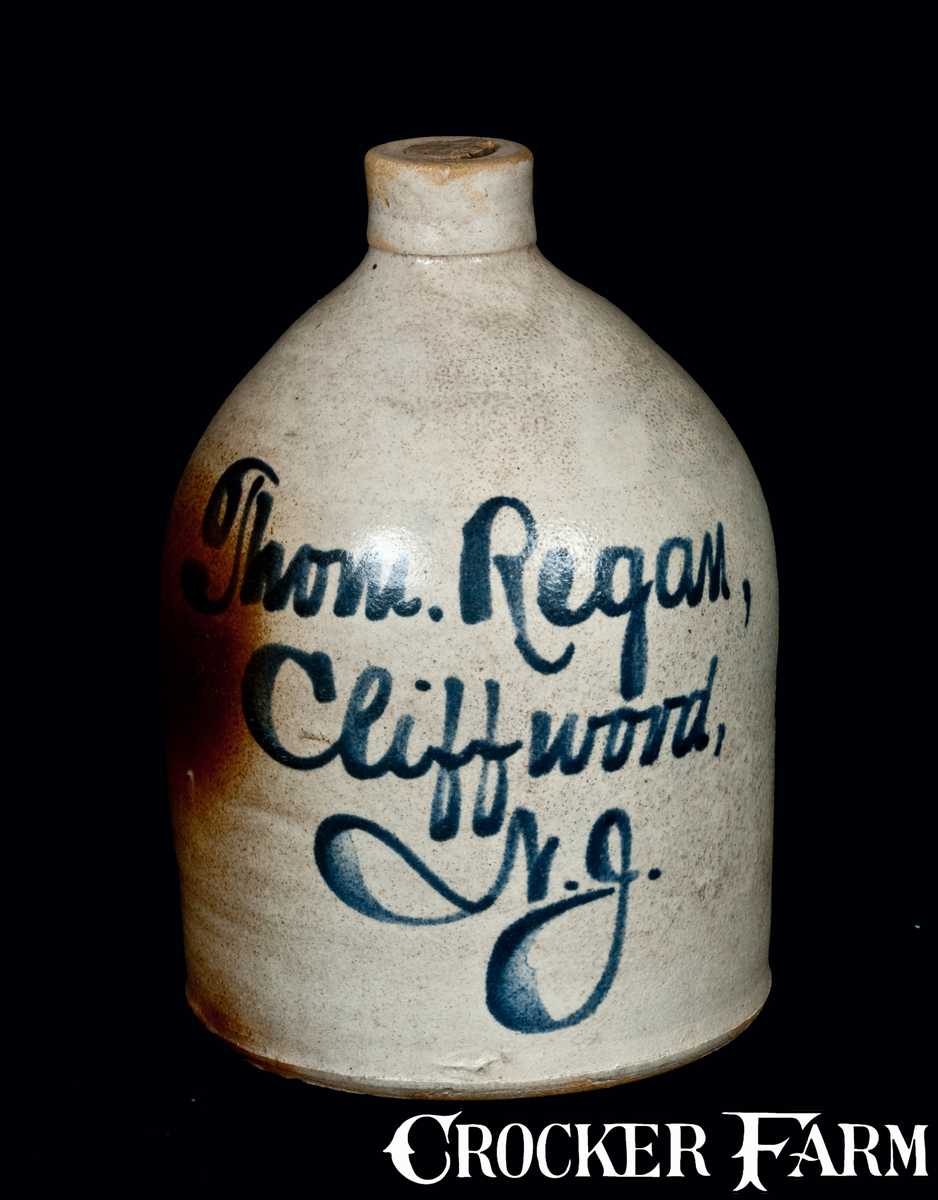 Thom. Regan,
Cliffwood,
N.J.
CROCKER FARM